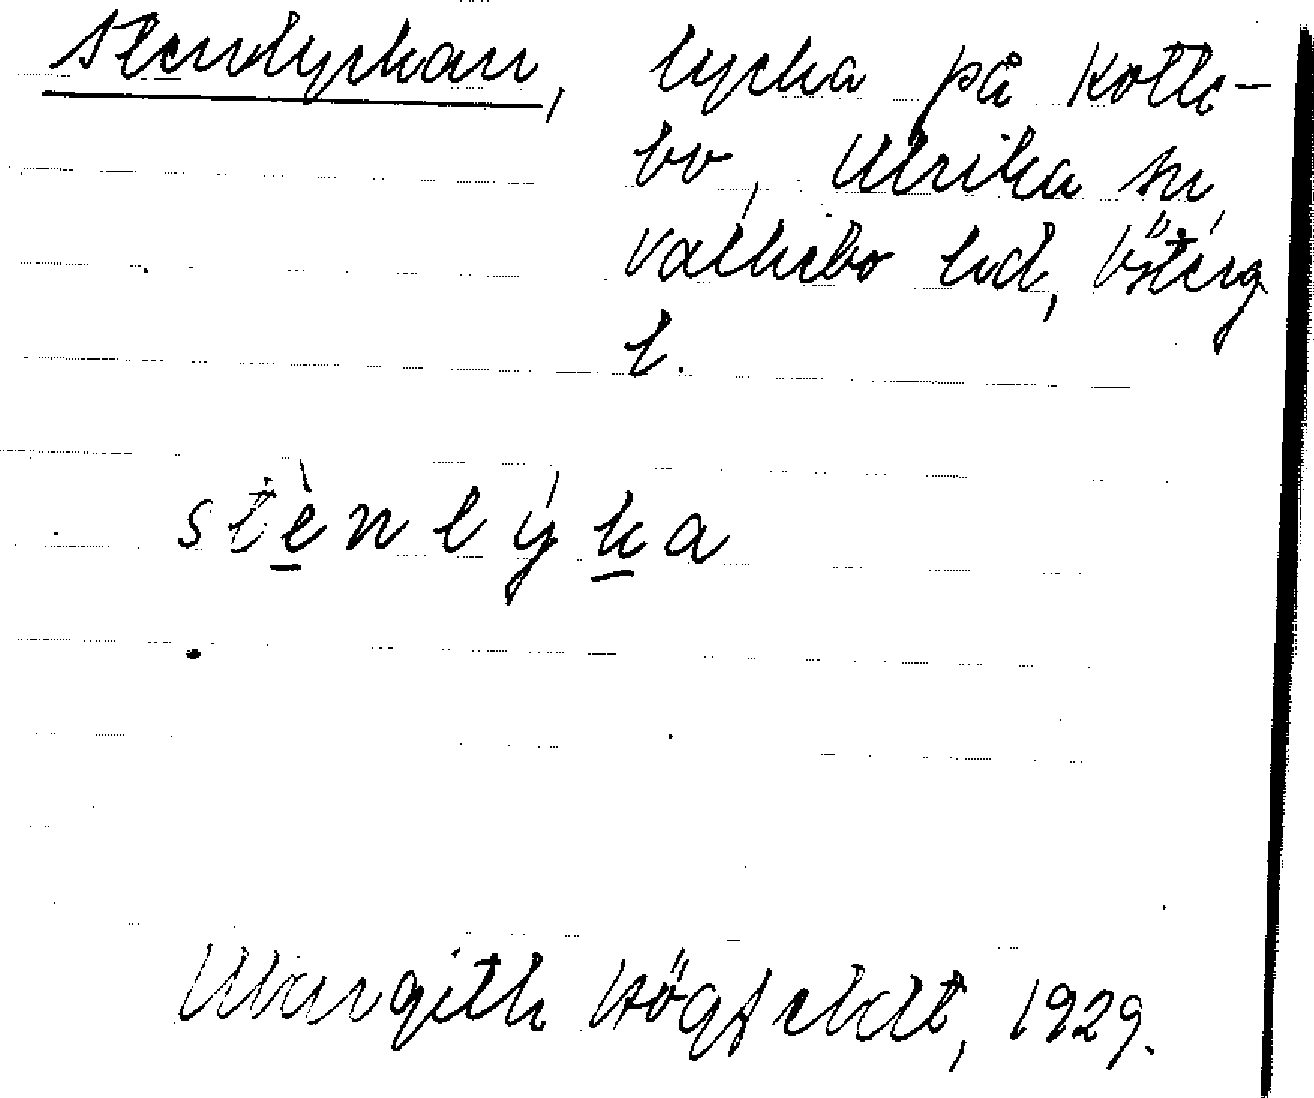 Stenlyckan, lycka på Kotte-
bo, Ulrika sn,
Valkebo hd, Österg.
l.
stènlýka
Margith Högfeldt, 1929.